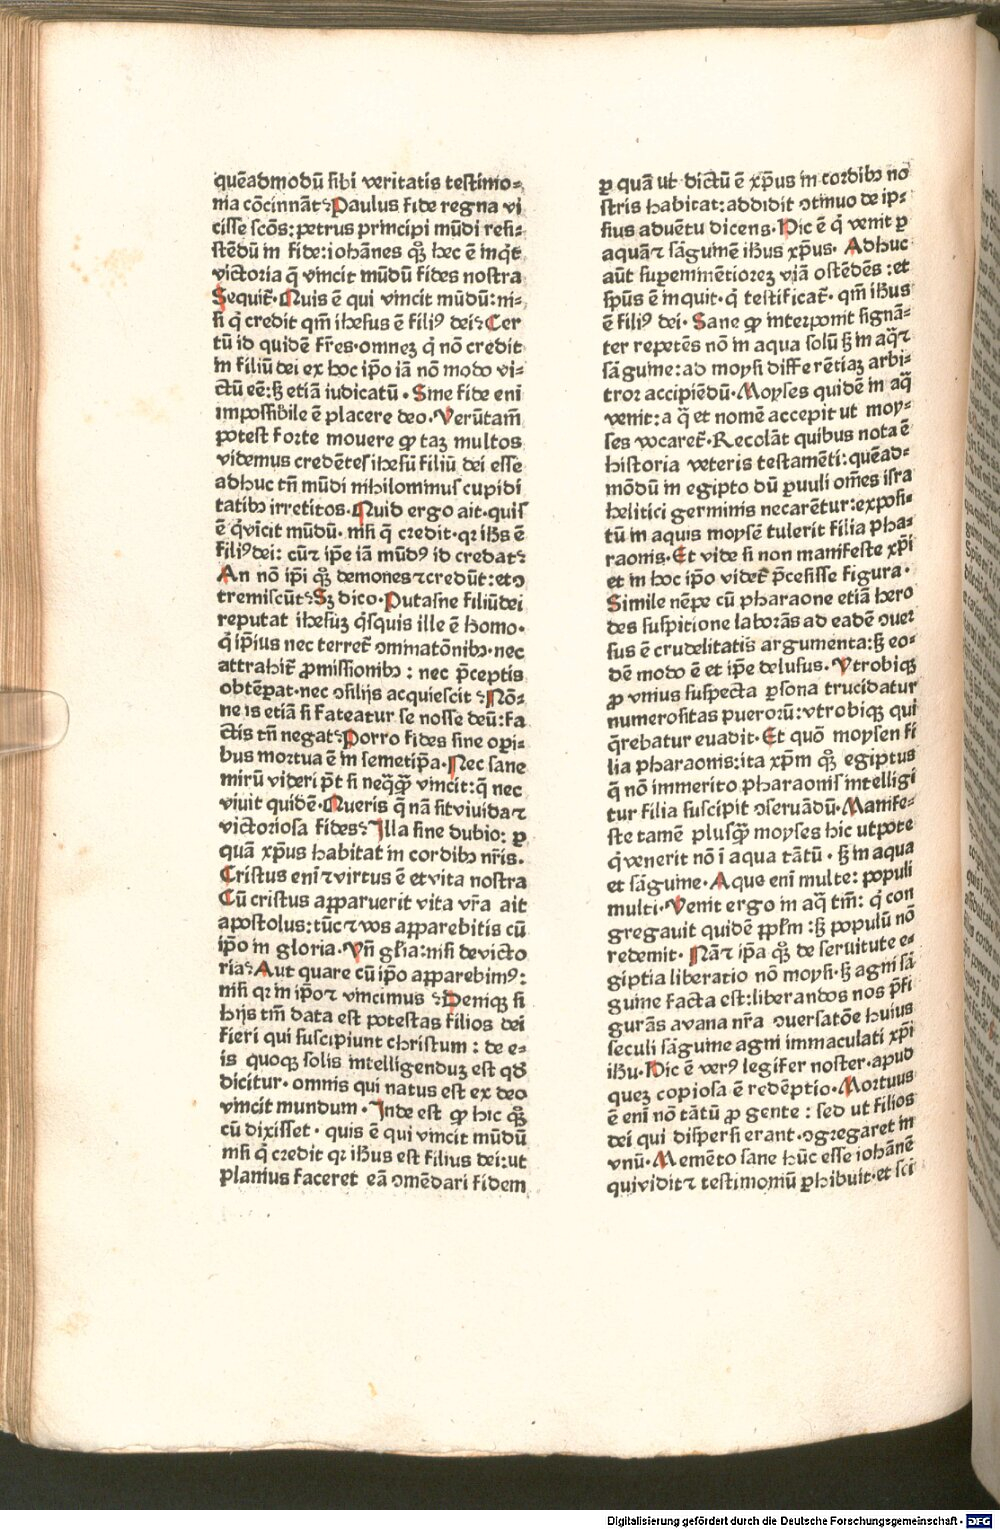 quēadmodū sibi veritatis testimo⸗
nia cōcinnāt? Paulus fide regna vi
cisse scōs: petrus principi mūdi resi⸗
stēdū in fide: iohānes qꝫ hec ē inq̄t
victoria q̄ vincit mūdū fides nostra
Sequit̄. Quis ē qui vincit mūdū: ni⸗
si q̄ credit qm̄ ihesus ē filiꝰ dei? Cer
tū id quidē fr̄es. omneꝫ q̄ nō credit
in filiū dei ex hoc ip̄o iā nō modo vi⸗
ctū eē: sꝫ etiā iudicatū. Sine fide eni
impossibile ē placere deo. Verūtam̄
potest forte movere ꝙ taꝫ multos
videmus credētes ihesū filiū dei esse
adhuc tn̄ mūdi nihilominus cupidi
tatibꝫ irretitos. Quid ergo ait. quis
ē q̄ vīcit mūdū. nisi q̄ credit. qꝛ ihūs ē
filiꝰ dei: cū ⁊ ip̄e iā mūdꝰ id credat?
An nō ip̄i qꝫ demones ⁊ credūt: et ↄ
tremiscūt? Sꝫ dico. Putasne filiū dei
reputat ihesūꝫ q̄squis ille ē homo.
q̄ ip̄ius nec terret̄ ↄminatōnibꝫ. nec
attrahit̄ ꝓmissionibꝫ: nec p̄ceptis
obtēperat. nec ↄsilijs acquiescit? Nō⸗
ne is etiā si fateatur se nosse deū: fa
ctis tn̄ negat? Porro fides sine operi⸗
bus mortua ē in semetip̄a. Nec sane
mirū videri p̄t si neq̄ꝙ̄ vincit: q̄ nec
viuit quidē. Queris q̄ nā sit viuida ⁊
victoriosa fides? Illa sine dubio: ꝑ
quā xp̄us habitat in cordibꝫ nr̄is.
Cristus eni ⁊ virtus ē et vita nostra
Cū cristus apparuerit vita vr̄a ait
apostolus: tūc ⁊ vos apparebitis cū
ip̄o in gloria. Vn̄ gl̄ia: nisi de victo
ria? Aut quare cū ip̄o apparebimꝰ:
nisi qꝛ in ip̄o ⁊ vincimus? Deniqꝫ si
hijs tm̄ data est potestas filios dei
fieri qui suscipiunt christum: de e⸗
is quoqꝫ solis intelligenduꝫ est qd̄
dicitur. omnis qui natus est ex deo
vincit mundum. Inde est ꝙ hic qꝫ
cū dixisset. quis ē qui vincit mūdū
nisi q̄ credit qꝛ ihūs est filius dei: ut
planius faceret eā ↄmēdari fidem
ꝑ quā ut dictū ē xp̄us in cordibꝫ no
stris habitat: addidit ↄtinuo de ip⸗
sius aduētu dicens. Hic ē q̄ venit ꝑ
aquā ⁊ sāguinē ihūs xp̄us. Adhuc
aūt supereminētioreꝫ viā ostēdēs: et
sp̄us ē inquit. q̄ testificat̄. qm̄ ihūs
ē filiꝰ dei. Sane ꝙ interponit signā⸗
ter repetēs nō in aqua solū sꝫ in aq̄ ⁊
sāguine: ad moysi differētiaꝫ arbi⸗
tror accipiēdū. Moyses quidē in aq̄
venit: a q̄ et nomē accepit ut moy⸗
ses vocaret̄. Recolāt quibus nota ē
historia veteris testamēti: quēad⸗
mōdū in egipto dū ꝑuuli om̄es isra
helitici germinis necarētur: exposi⸗
tū in aquis moysē tulerit filia pha⸗
raonis. Et vide si non manifeste xp̄i
et in hoc ip̄o videt̄ p̄cesisse figura.
Simile nēpe cū pharaone etiā hero
des suspitione laborās ad eadē ↄuer
sus ē crudelitatis argumenta: sꝫ eo⸗
dē modo ē et ip̄e delusus. Vtrobiqꝫ
ꝓ vnius suspecta ꝑsona trucidatur
numerositas puerorū: vtrobiqꝫ qui
q̄rebatur euadit. Et quō moysen fi
lia pharaonis: ita xp̄m qꝫ egiptus
q̄ nō immerito pharaonis intelligi
tur filia suscipit ↄseruādū. Manife⸗
ste tamē plusꝙ̄ moyses hic utpote
q̄ venerit nō ī aqua tātū. sꝫ in aqua
et sāguine. Aque eni multe: populi
multi. Venit ergo in aq̄ tm̄: q̄ con
gregauit quidē ꝓplm̄: sꝫ populū nō
redemit. Nā ⁊ ip̄a qꝫ de seruitute e⸗
giptia liberatio nō moysi. sꝫ agni sā
guine facta est: liberandos nos p̄fi
gurās a vana nr̄a ↄuersatōe huius
seculi sāguine agni immaculati xp̄i
ihū. Hic ē verꝰ legifer noster. apud
queꝫ copiosa ē redēptio. Mortuus
ē eni nō tātū ꝓ gente: sed ut filios
dei qui dispersi erant. ↄgregaret in
vnū. Memēto sane hūc esse iohānē
qui vidit ⁊ testimoniū ꝑhibuit. et sci
Digitalisierung gefördert durch die Deutsche Forschungsgemeinschaft - DFG